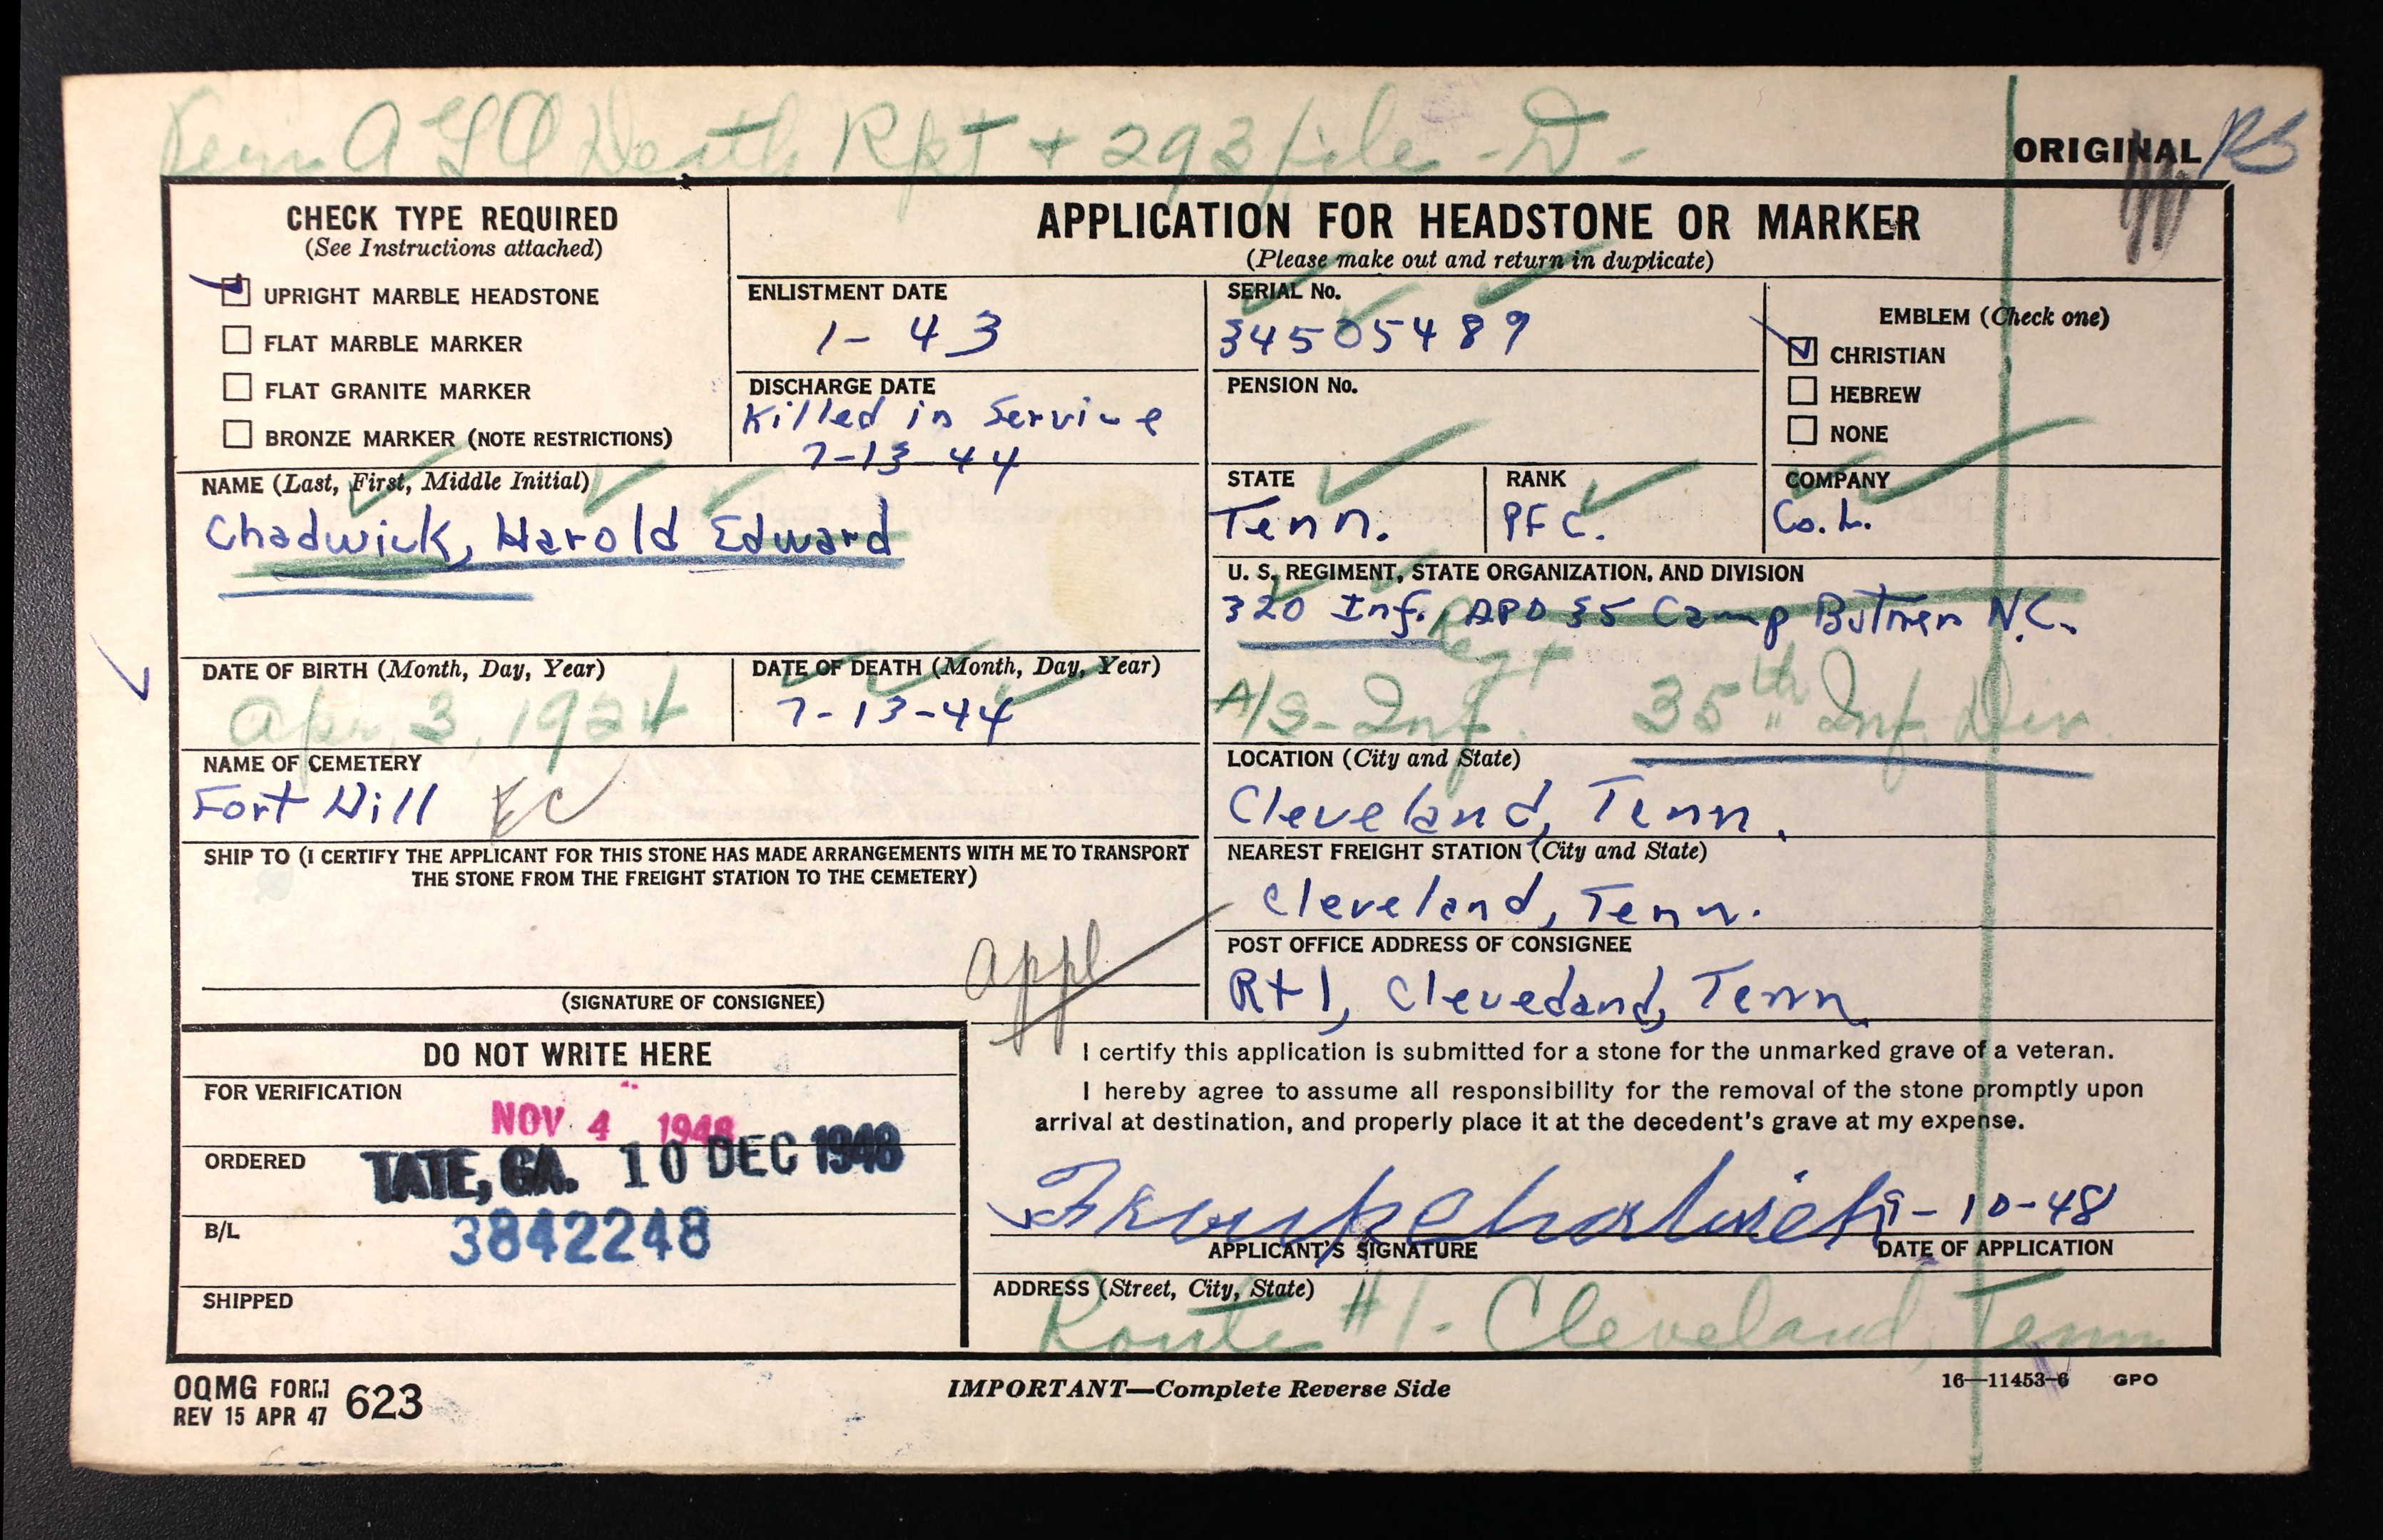 Verm AGO Death Rpt + 293 file - D -
ORIGINAL RS
CHECK TYPE REQUIRED
(See Instructions attached)
UPRIGHT MARBLE HEADSTONE
FLAT MARBLE MARKER
FLAT GRANITE MARKER
BRONZE MARKER (NOTE RESTRICTIONS)
APPLICATION FOR HEADSTONE OR MARKER
(Please make out and return in duplicate)
ENLISTMENT DATE
1-43
DISCHARGE DATE
Killed in Service
7-13-44
SERIAL No.
34505489
PENSION No.
EMBLEM (Check one)
CHRISTIAN
HEBREW
NONE
NAME (Last, First, Middle Initial)
Chadwick, Harold Edward
STATE
Tenn.
RANK
PFC.
COMPANY
Co. L.
U. S. REGIMENT, STATE ORGANIZATION, AND DIVISION
320 Inf. APO 35 Camp Butner N.C.
Regt
A/S-Inf. 35th Inf. Div.
DATE OF BIRTH (Month, Day, Year)
Apr. 3, 1924
DATE OF DEATH (Month, Day, Year)
7-13-44
NAME OF CEMETERY
Fort Hill EC
LOCATION (City and State)
Cleveland, Tenn.
SHIP TO (I CERTIFY THE APPLICANT FOR THIS STONE HAS MADE ARRANGEMENTS WITH ME TO TRANSPORT
THE STONE FROM THE FREIGHT STATION TO THE CEMETERY)
appl
(SIGNATURE OF CONSIGNEE)
NEAREST FREIGHT STATION (City and State)
Cleveland, Tenn.
POST OFFICE ADDRESS OF CONSIGNEE
Rt 1, Cleveland, Tenn.
DO NOT WRITE HERE
FOR VERIFICATION
NOV 4 1948
ORDERED
TATE, GA. 10 DEC 1948
B/L
3842248
SHIPPED
I certify this application is submitted for a stone for the unmarked grave of a veteran.
I hereby agree to assume all responsibility for the removal of the stone promptly upon
arrival at destination, and properly place it at the decedent's grave at my expense.
Frank Chadwick 9-10-48
APPLICANT'S SIGNATURE DATE OF APPLICATION
ADDRESS (Street, City, State)
Route #1 - Cleveland, Tenn
OQMG FORM 623
REV 15 APR 47
IMPORTANT—Complete Reverse Side
16—11453-6 GPO